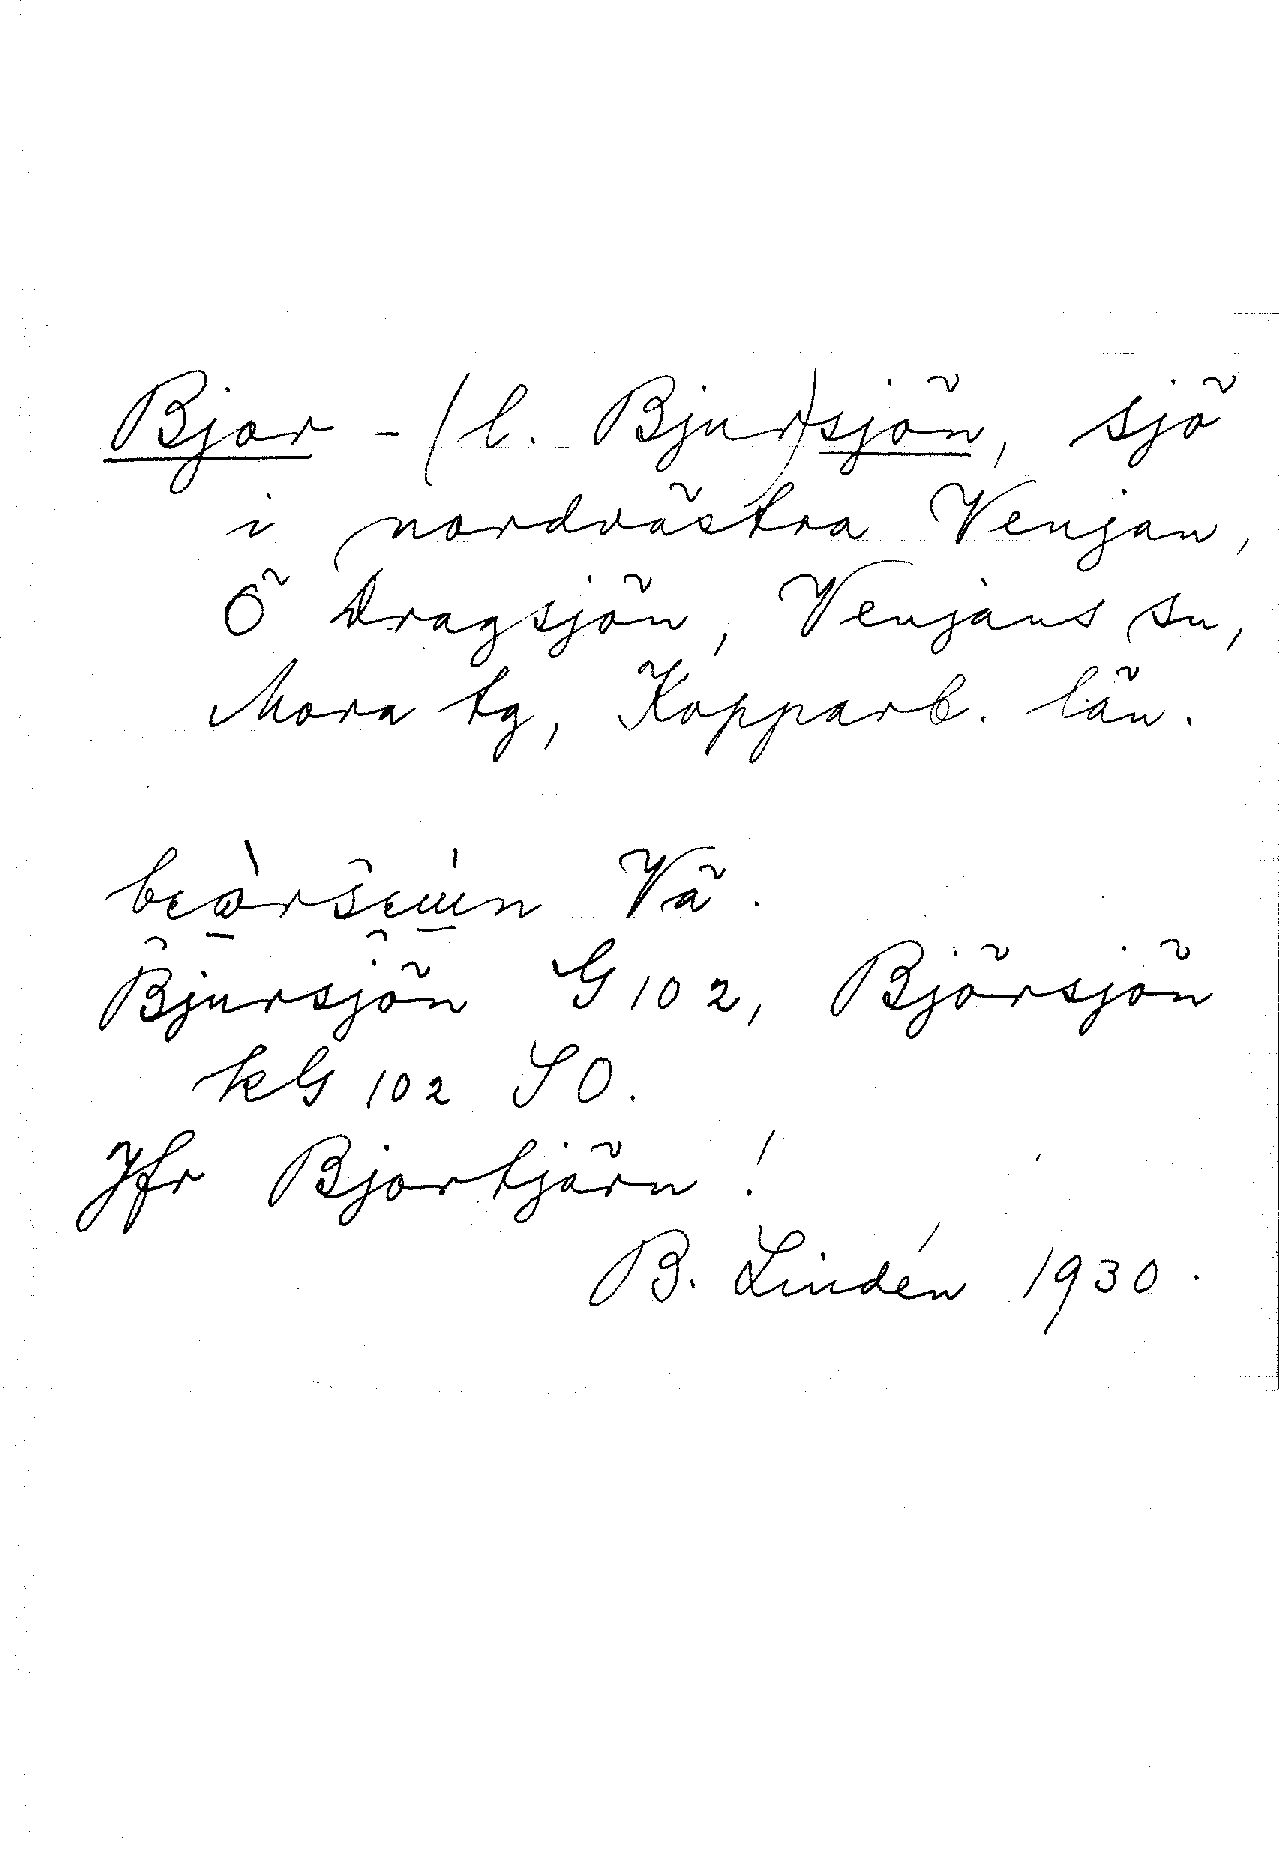 Bjor - (l. Bjur)sjön, sjö
i nordvästra Venjan,
Ö Dragsjön, Venjans sn,
Mora tg, Kopparb. län.
Vä.
Bjursjön G 102, Björsjön
kG 102 SO.
Jfr Bjortjärn!
B. Lindén 1930.